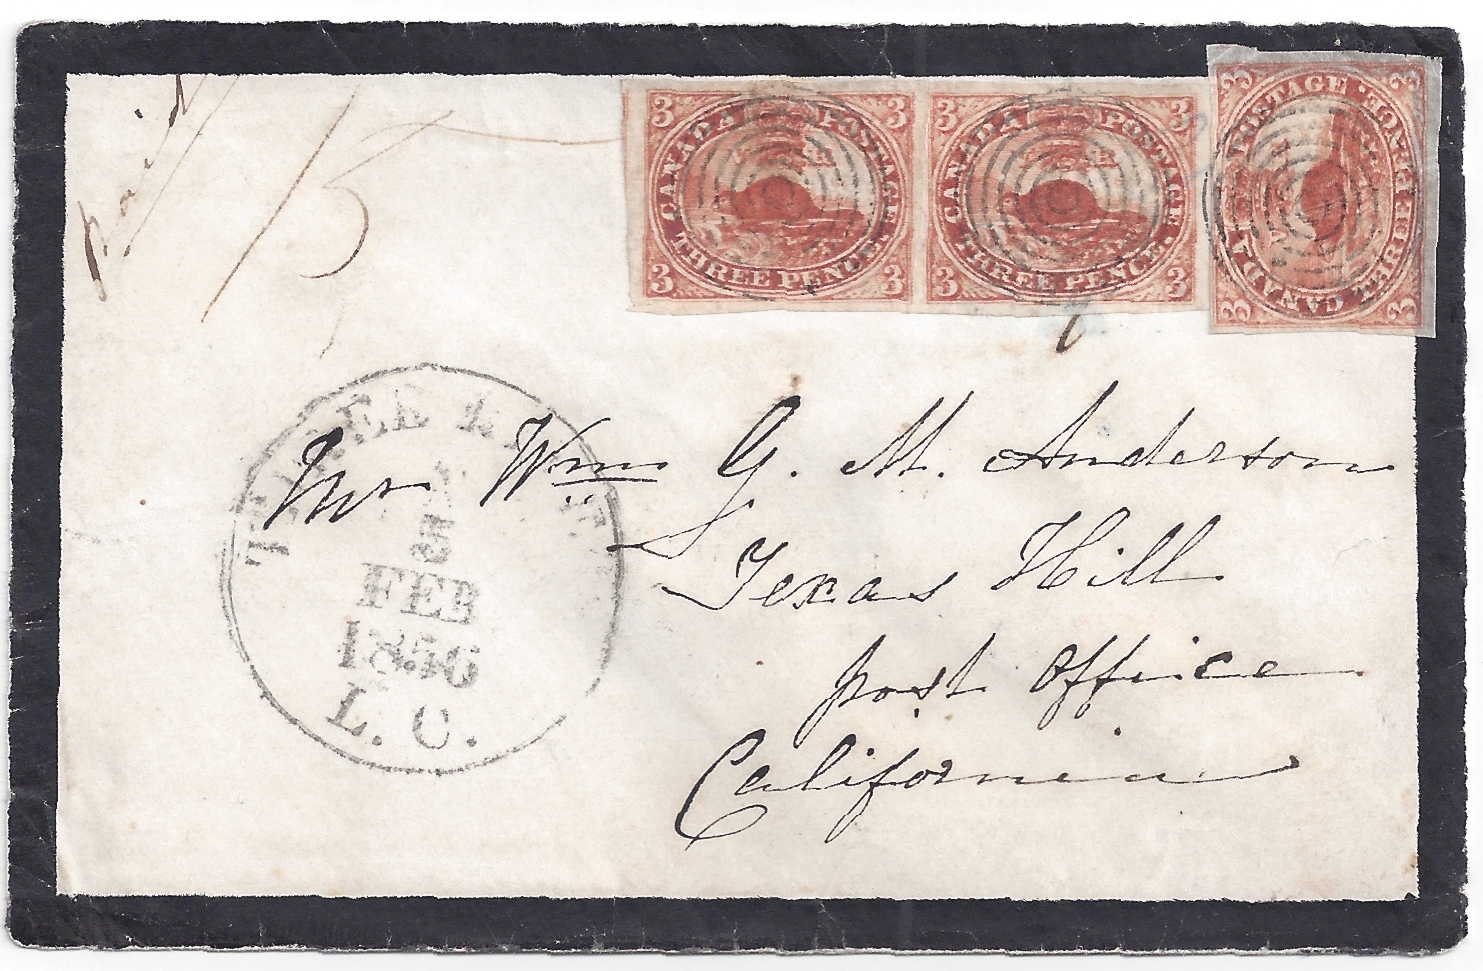 paid 1/3
3 CANADA POSTAGE 3
3 THREE PENCE. 3
3 CANADA POSTAGE 3
3 THREE PENCE. 3
3 CANADA POSTAGE. 3
3 THREE PENCE. 3
Mr Wm G. M. Anderson
Texas Hill
post Office
California
THREE
5
FEB
1856
L. C.